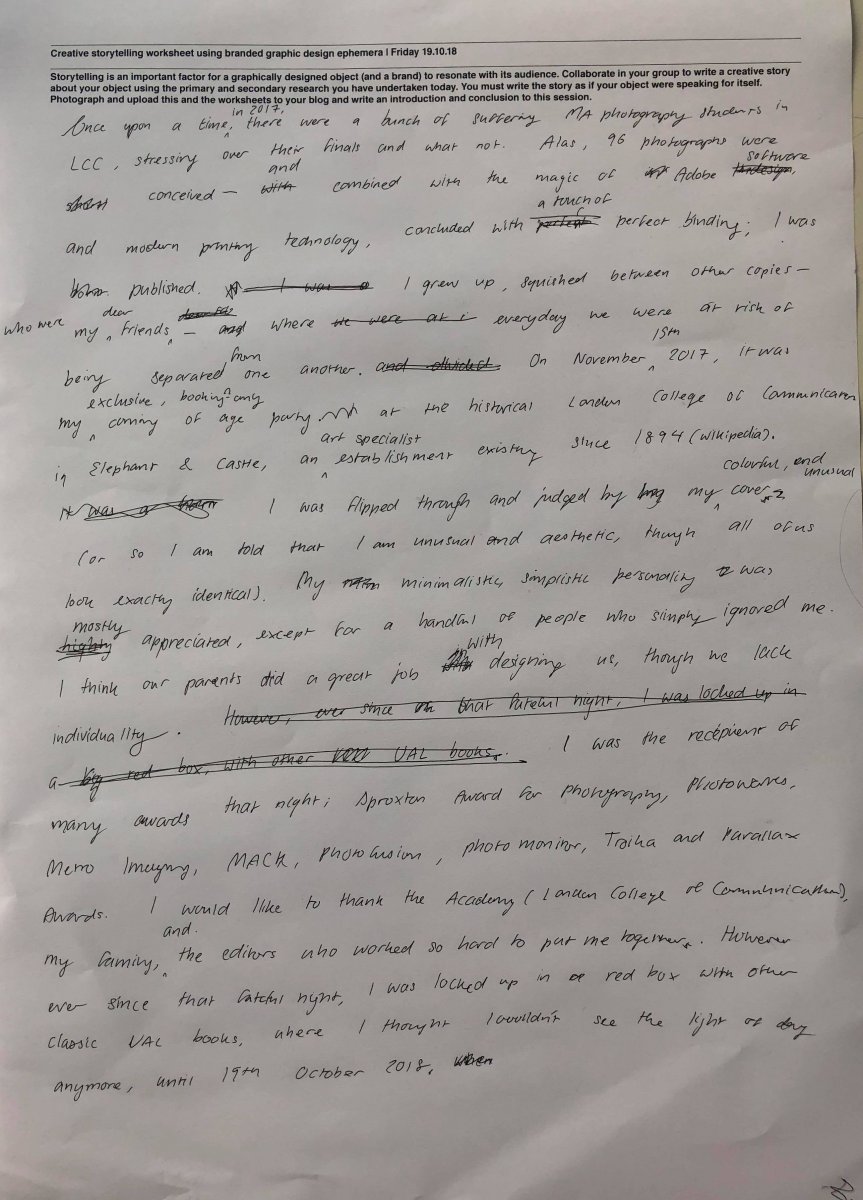 Creative storytelling worksheet using branded graphic design ephemera | Friday 19.10.18
Storytelling is an important factor for a graphically designed object (and a brand) to resonate with its audience. Collaborate in your group to write a creative story
about your object using the primary and secondary research you have undertaken today. You must write the story as if your object were speaking for itself.
Photograph and upload this and the worksheets to your blog and write an introduction and conclusion to this session.
in 2017,
Once upon a time, there were a bunch of suffering MA photography students in
LCC, stressing over their finals and what not. Alas, 96 photographs were
and software
conceived — with combined with the magic of Adobe Indesign,
a touch of
and modern printing technology, concluded with perfect perfect binding; I was
born published. I was a I grew up, squished between other copies —
who were dear
my friends — and where we were at everyday we were at risk of
from 15th
being separated one another. and divided On November 2017, it was
exclusive, booking-only
my coming of age party at the historical London College of Communication
art specialist
in Elephant & Castle, an establishment existing since 1894 (wikipedia).
colorful, and unusual
It was a I was flipped through and judged by my cover
(or so I am told that I am unusual and aesthetic, though all of us
look exactly identical). My minimalistic, simplistic personality was
mostly
highly appreciated, except for a handful of people who simply ignored me.
with
I think our parents did a great job designing us, though we lack
individuality. However, ever since on that fateful night, I was locked up in
a big red box, with other UAL books. I was the recepient of
many awards that night; Sproxton Award for photography, Photoworks,
Metro Imaging, MACK, Photofusion, photomonitor, Troika and Parallax
Awards. I would like to thank the Academy (London College of Communication),
and
my family, the editors who worked so hard to put me together. However
ever since that fateful night, I was locked up in a red box with other
classic UAL books, where I thought I wouldn't see the light of day
anymore, until 19th October 2018, when